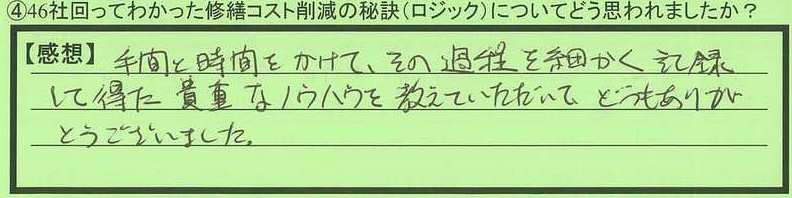 ④46社回ってわかった修繕コスト削減の秘訣(ロジック)についてどう思われましたか？
【感想】手間と時間をかけて、その過程を細かく記録
して得た貴重なノウハウを教えていただいて、どうもありが
とうございました。